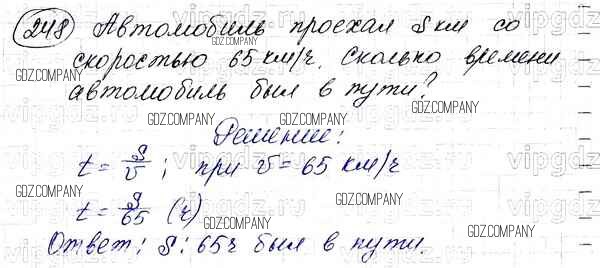 248 Автомобиль проехал S км со
скоростью 65 км/ч. Сколько времени
автомобиль был в пути?
Решение:
t = S/v ; при v = 65 км/ч
t = S/65 (ч)
Ответ: S : 65 ч был в пути.
GDZ.COMPANY
GDZ.COMPANY
GDZ.COMPANY
GDZ.COMPANY
GDZ.COMPANY
GDZ.COMPANY
GDZ.COMPANY
GDZ.COMPANY
GDZ.COMPANY
GDZ.COMPANY
GDZ.COMPANY